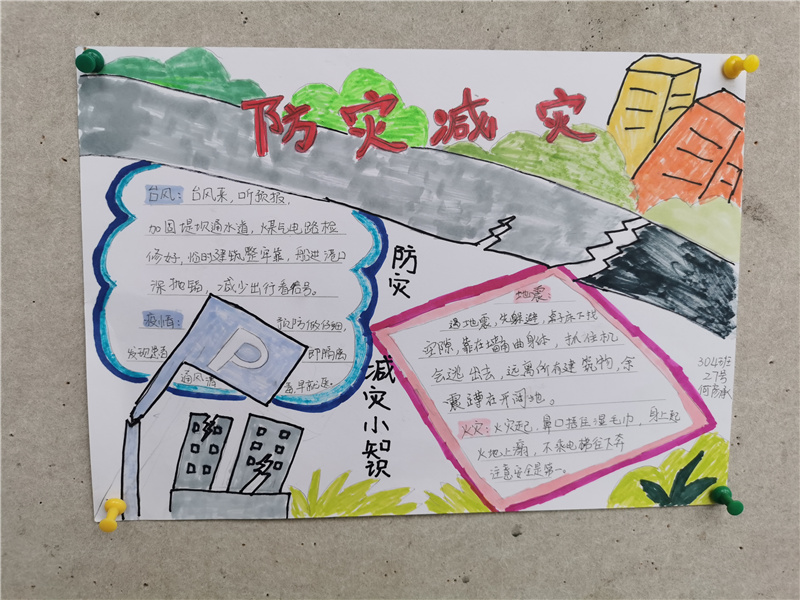 防灾减灾
台风：台风来，听预报，
加固堤坝通水道，煤气电路检
修好，临时建筑整牢靠，船进港口
深抛锚，减少出行看信号。
疫情： 预防做仔细，
发现患者 即隔离
通风消 毒，早就医。
P
防灾
减灾小知识
地震：
遇地震，先躲避，桌子床下找
空隙，靠在墙角曲身体，抓住机
会逃出去，远离所有建筑物，余
震蹲在开阔地。
火灾：火灾起，鼻口捂住湿毛巾，身上起
火地上滚，不乘电梯往下奔
注意安全是第一。
304班
27号